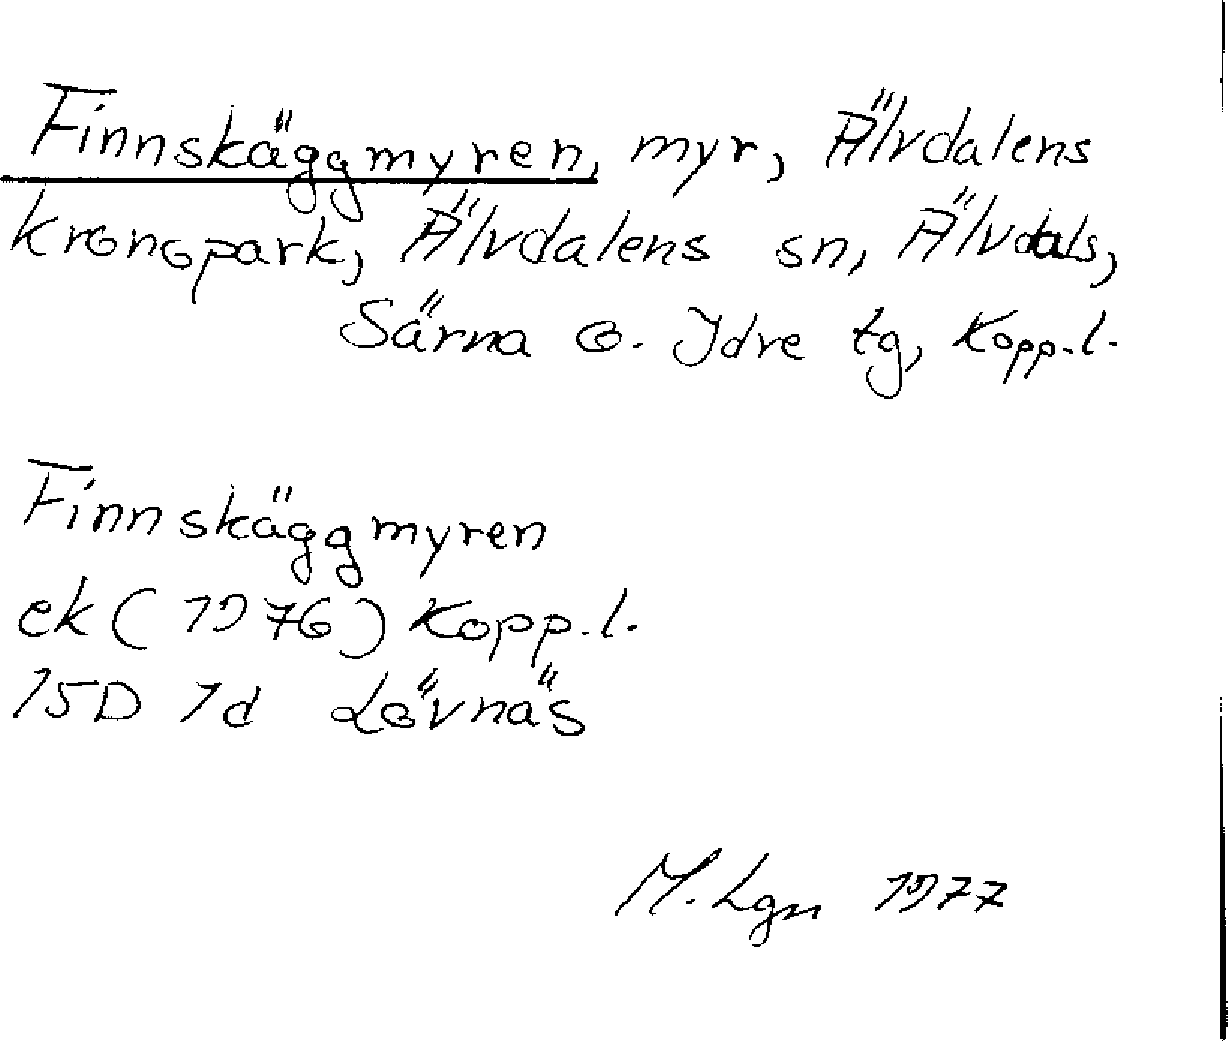 Finnskäggmyren, myr, Älvdalens
kronopark, Älvdalens sn, Älvdals,
Särna o. Idre tg, Kopp.l.
Finnskäggmyren
ek (1976) Kopp.l.
15D 1d Lövnäs
M. Lgn 1977